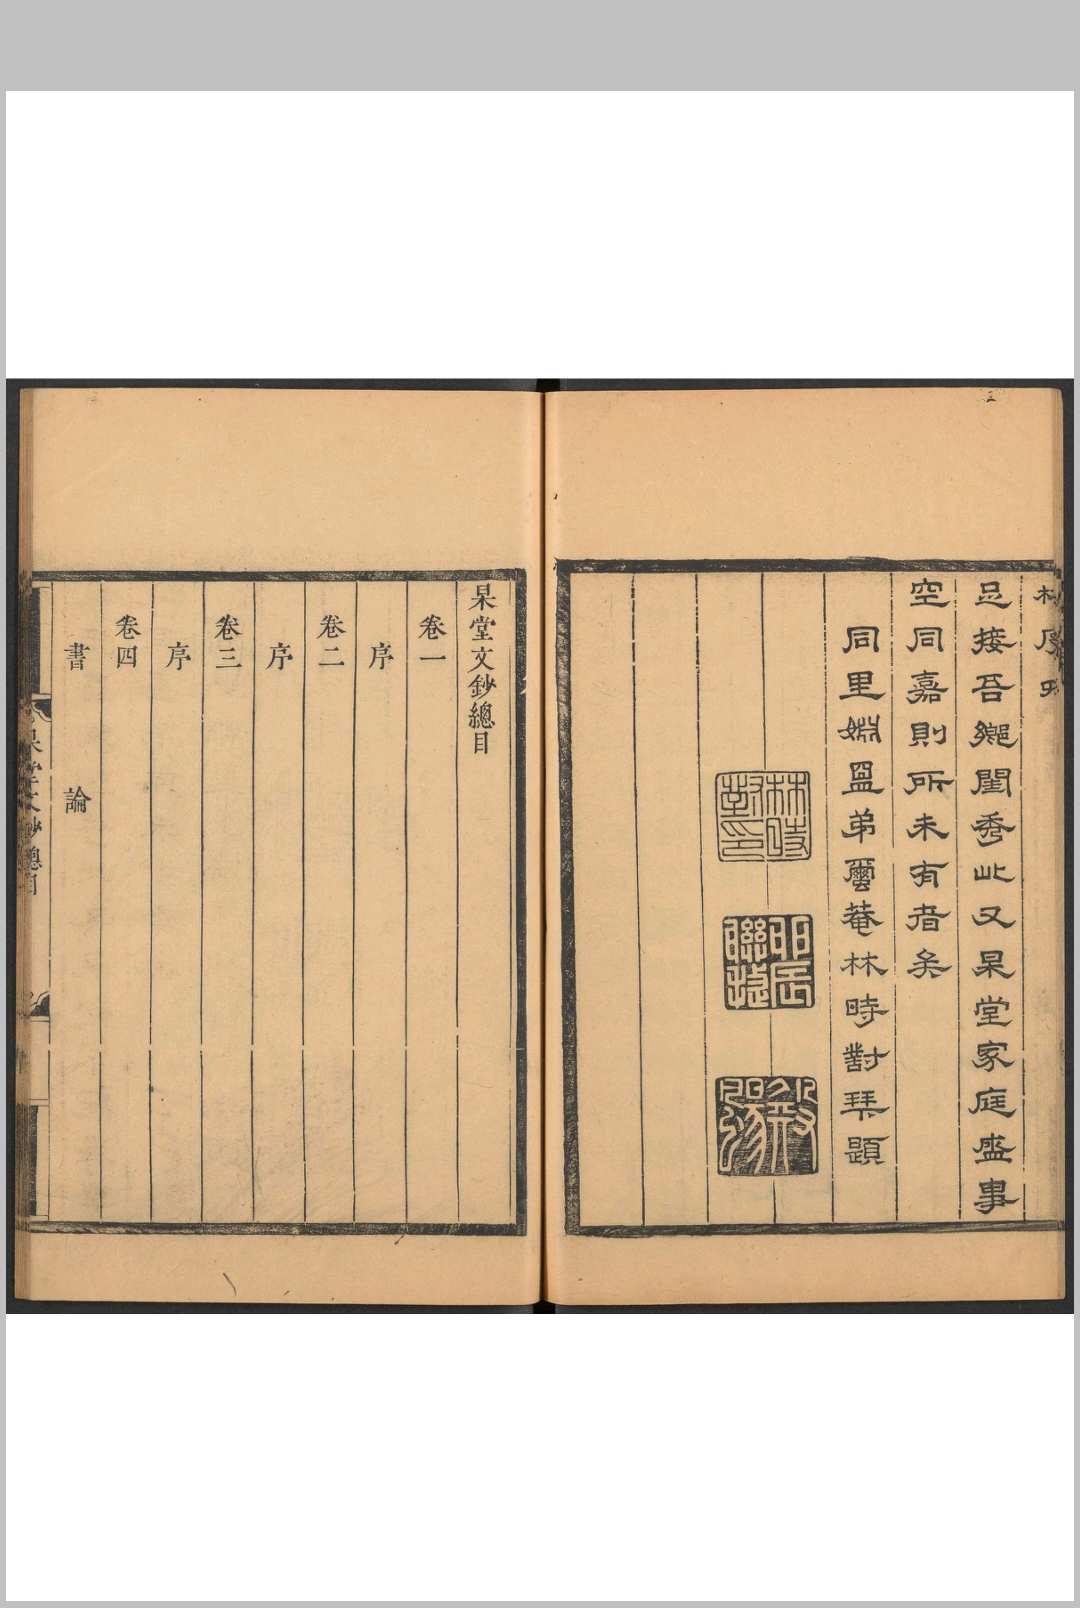 林序 四
足接吾鄉閨秀此又杲堂家庭盛事
空同嘉則所未有者矣
同里姻盟弟蠒菴林時對琹題
林時對印
杲堂文鈔總目
卷一
序
卷二
序
卷三
序
卷四
書 論
杲堂文鈔總目